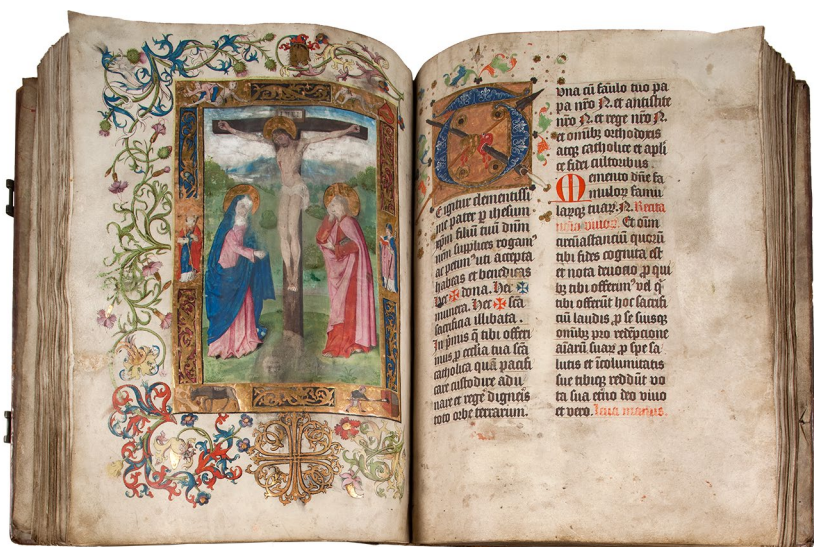 T
E igitur clementissi
me pater ꝑ ihesum
xp̄m filiū tuū dūm
nr̄m supplices rogamꝰ
ac petimꝰ uti accepta
habeas et benedicas
hec ✠ dona. Hec ✠
munera. Hec ✠ scā
sacrificia illibata.
In pͥmis q̄ tibi offeri
mus ꝓ ecclīa tua scā
catholica quā pacifi
care custodire adu
nare et regē digneis
toto orbe terrarum.
vna cū faulo tuo pa
pa nr̄o N. et antistite
nr̄o N. et rege nr̄o N.
et omībꝫ orthodoxis
atqꝫ catholice et apl̄i
ce fidei cultoribus.
Memento dn̄e fa
mulorꝫ famu
larꝫqꝫ tuarꝫ. N. Recita
noīa viuorꝫ. Et oīm
circūastanciū quorū
tibi fides cognita est
et nota deuocio ꝓ qui
bꝫ tibi offerimꝰ vel q̄
tibi offerūt hoc sacrifi
ciū laudis ꝓ se suisqꝫ
omībꝫ pro redēpcione
aīarū suarꝫ ꝓ spe sa
lutis et īcolumitatis
sue tibiqꝫ reddūt vo
ta sua etn̄o deo viuo
et vero. Infra manus.